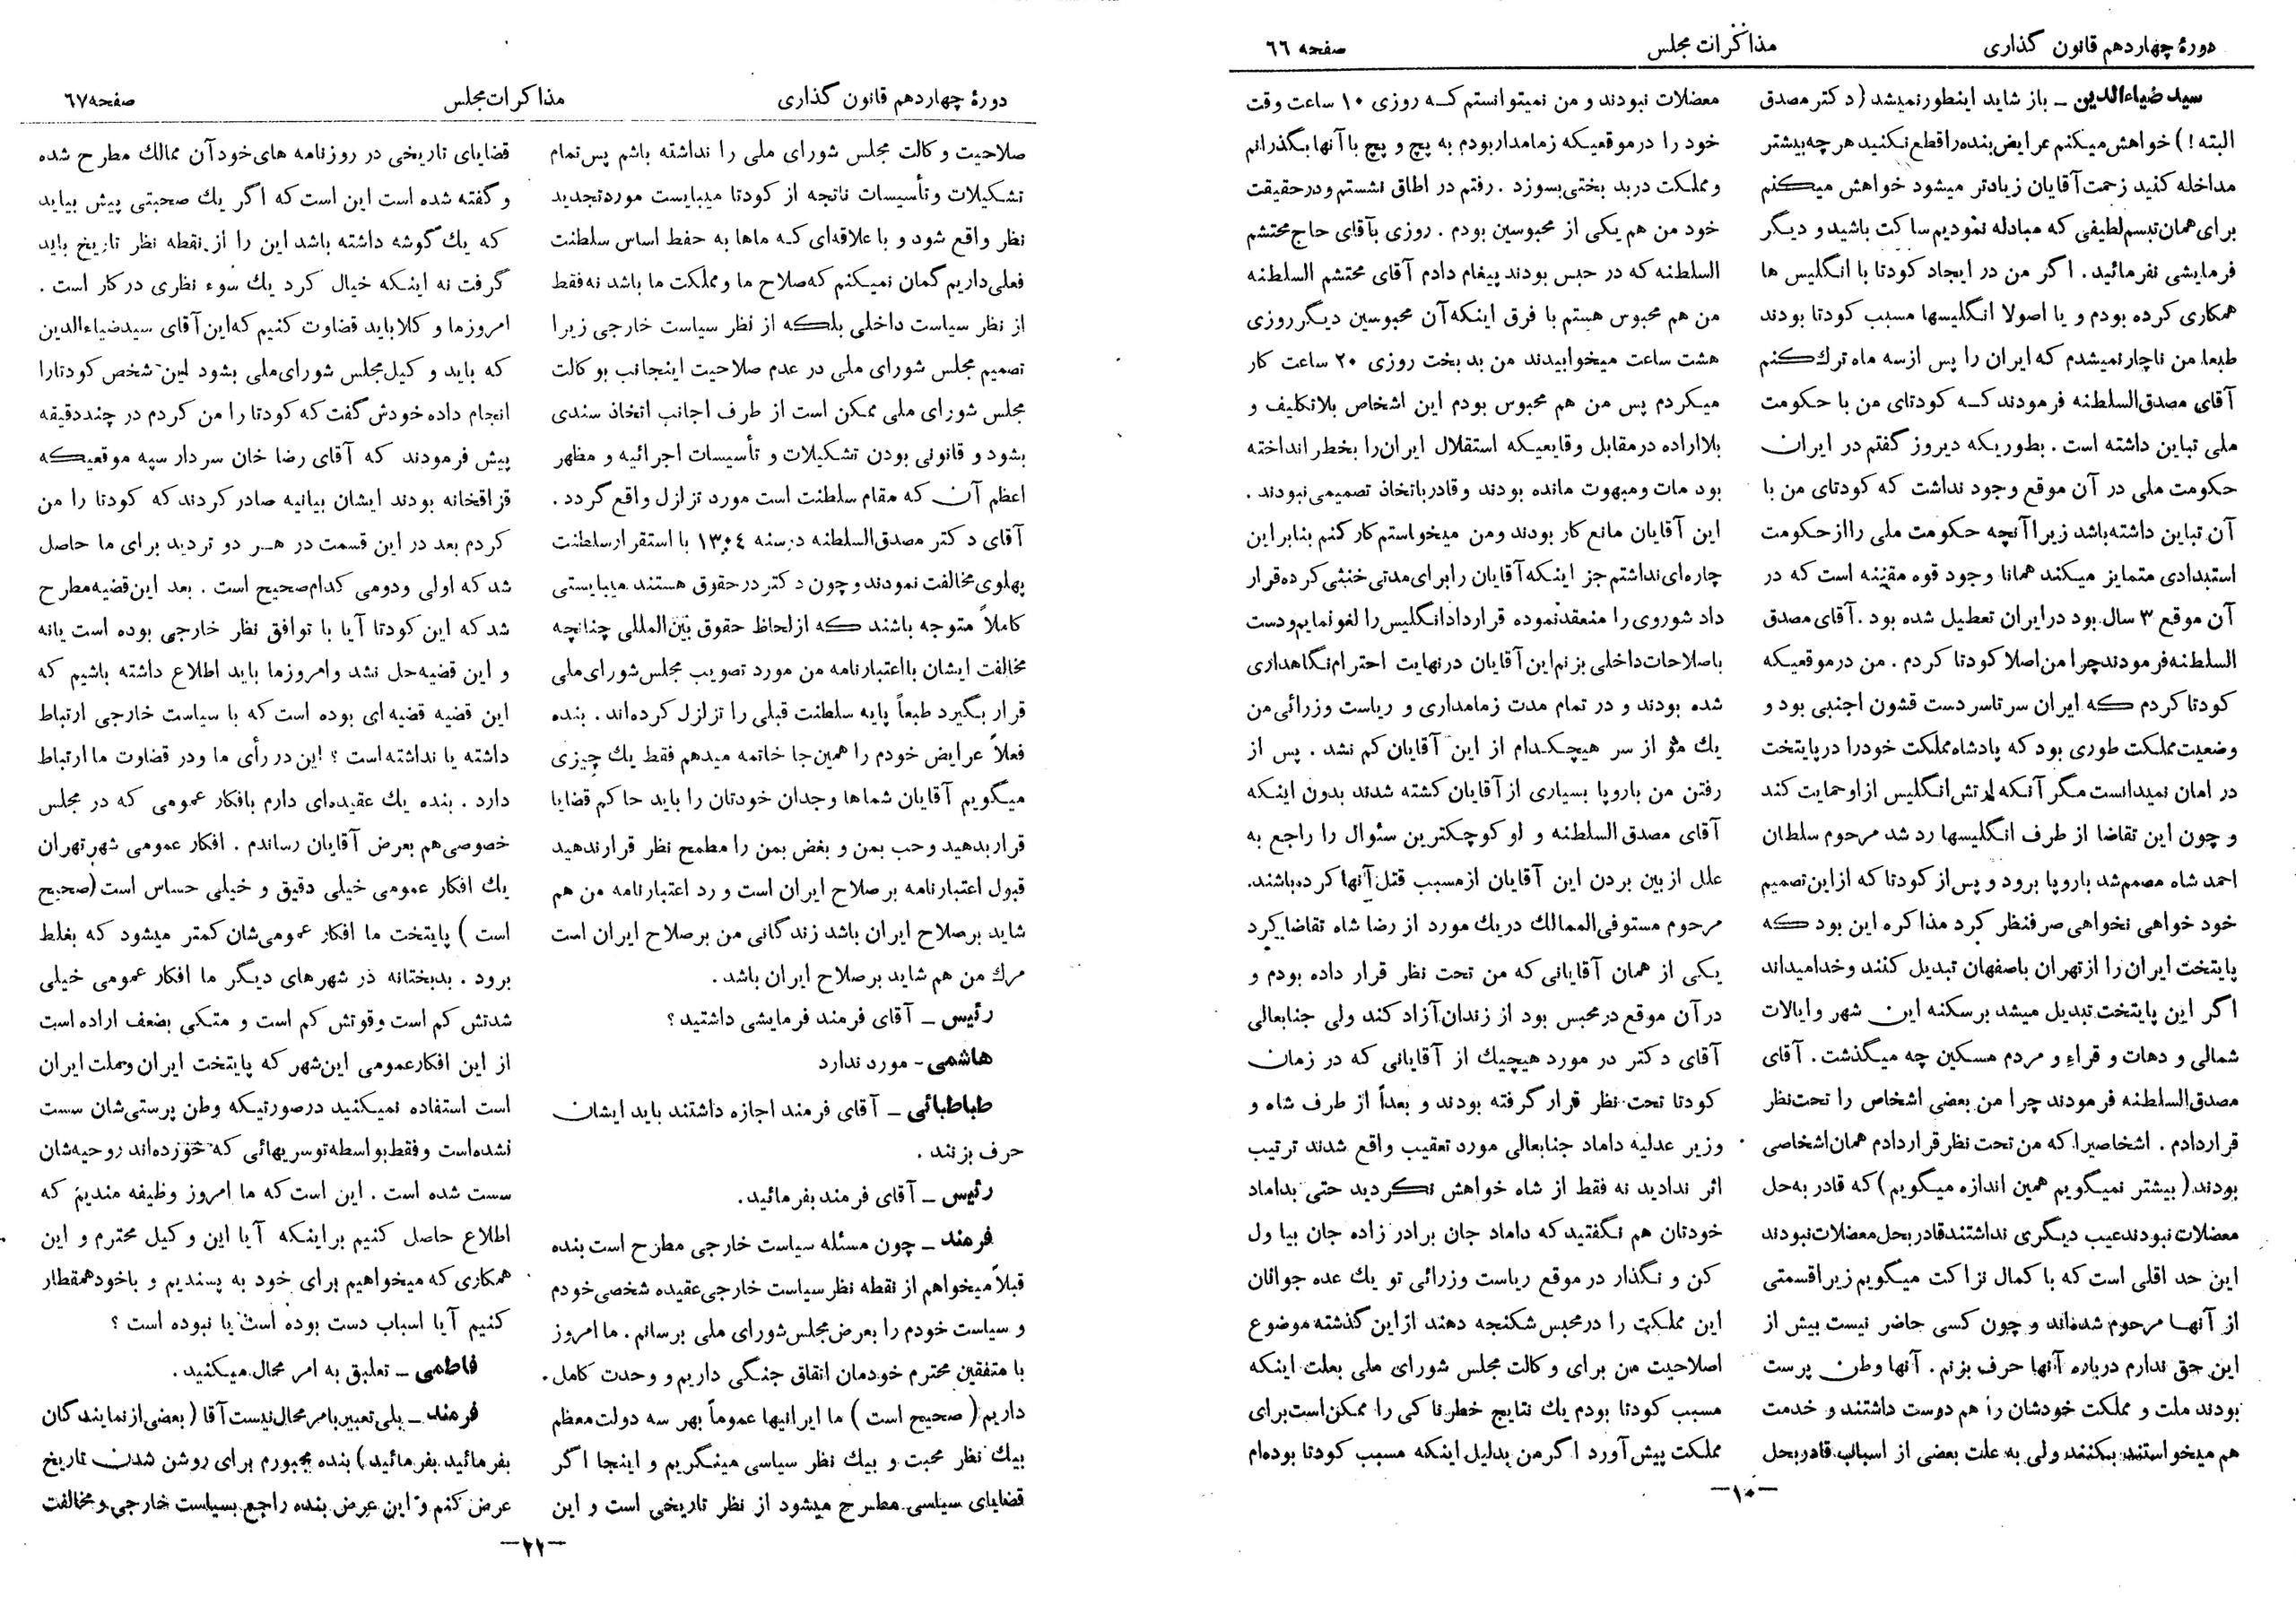 دورهٔ چهاردهم قانون گذاری
مذاکرات مجلس
صفحه ٦٦
سید ضیاءالدین ــ باز شاید اینطورنمیشد (دکتر مصدق
البته !) خواهش میکنم عرایض بنده را قطع نکنید هر چه بیشتر
مداخله کنید زحمت آقایان زیادتر میشود خواهش میکنم
برای همان تبسم لطیفی که مبادله نمودیم ساکت باشید و دیگر
فرمایشی نفرمائید . اگر من در ایجاد کودتا با انگلیس ها
همکاری کرده بودم و یا اصولا انگلیسها مسبب کودتا بودند
طبعا من ناچار نمیشدم که ایران را پس از سه ماه ترك کنم
آقای مصدق السلطنه فرمودند که کودتای من با حکومت
ملی تباین داشته است . بطوریکه دیروز گفتم در ایران
حکومت ملی در آن موقع وجود نداشت که کودتای من با
آن تباین داشته باشد زیرا آنچه حکومت ملی را از حکومت
استبدادی متمایز میکند همانا وجود قوه مقننه است که در
آن موقع ۳ سال بود در ایران تعطیل شده بود . آقای مصدق
السلطنه فرمودند چرا من اصلا کودتا کردم . من در موقعیکه
کودتا کردم که ایران سرتاسر دست قشون اجنبی بود و
وضعیت مملکت طوری بود که پادشاه مملکت خود را در پایتخت
در امان نمیدانست مگر آنکه ارتش انگلیس از او حمایت کند
و چون این تقاضا از طرف انگلیسها رد شد مرحوم سلطان
احمد شاه مصمم شد باروپا برود و پس از کودتا که از این تصمیم
خود خواهی نخواهی صرفنظر کرد مذاکره این بود که
پایتخت ایران را از تهران باصفهان تبدیل کنند و خدا میداند
اگر این پایتخت تبدیل میشد بر سکنه این شهر و ایالات
شمالی و دهات و قراء و مردم مسکین چه میگذشت . آقای
مصدق السلطنه فرمودند چرا من بعضی اشخاص را تحت نظر
قرار دادم . اشخاصیرا که من تحت نظر قرار دادم همان اشخاصی
بودند (بیشتر نمیگویم همین اندازه میگویم) که قادر به حل
معضلات نبودند عیب دیگری نداشتند قادر بحل معضلات نبودند
این حد اقلی است که با کمال نزاکت میگویم زیرا قسمتی
از آنها مرحوم شده‌اند و چون کسی حاضر نیست بیش از
این حق ندارم درباره آنها حرف بزنم . آنها وطن پرست
بودند ملت و مملکت خودشان را هم دوست داشتند و خدمت
هم میخواستند بکنند ولی به علت بعضی از اسباب قادر بحل
معضلات نبودند و من نمیتوانستم که روزی ۱۰ ساعت وقت
خود را در موقعیکه زمامدار بودم به پچ و پچ با آنها بگذرانم
و مملکت در بد بختی بسوزد . رفتم در اطاق نشستم و در حقیقت
خود من هم یکی از محبوسین بودم . روزی بآقای حاج محتشم
السلطنه که در حبس بودند پیغام دادم آقای محتشم السلطنه
من هم محبوس هستم با فرق اینکه آن محبوسین دیگر روزی
هشت ساعت میخوابیدند من بد بخت روزی ۲۰ ساعت کار
میکردم پس من هم محبوس بودم این اشخاص بلاتکلیف و
بلا اراده در مقابل وقایعیکه استقلال ایران را بخطر انداخته
بود مات و مبهوت مانده بودند و قادر باتخاذ تصمیمی نبودند .
این آقایان مانع کار بودند و من میخواستم کار کنم بنابراین
چاره‌ای نداشتم جز اینکه آقایان را برای مدتی خنثی کرده قرار
داد شوروی را منعقد نموده قرارداد انگلیس را لغو نمایم و دست
باصلاحات داخلی بزنم این آقایان در نهایت احترام نگاهداری
شده بودند و در تمام مدت زمامداری و ریاست وزرائی من
یك مو از سر هیچکدام از این آقایان کم نشد . پس از
رفتن من باروپا بسیاری از آقایان کشته شدند بدون اینکه
آقای مصدق السلطنه و لو کوچکترین سئوال را راجع به
علل از بین بردن این آقایان از مسبب قتل آنها کرده باشند .
مرحوم مستوفی الممالك در یك مورد از رضا شاه تقاضا کرد
یکی از همان آقایانی که من تحت نظر قرار داده بودم و
در آن موقع در محبس بود از زندان آزاد کند ولی جنابعالی
آقای دکتر در مورد هیچیك از آقایانی که در زمان
کودتا تحت نظر قرار گرفته بودند و بعداً از طرف شاه و
وزیر عدلیه داماد جنابعالی مورد تعقیب واقع شدند ترتیب
اثر ندادید نه فقط از شاه خواهش نکردید حتی بداماد
خودتان هم نگفتید که داماد جان برادر زاده جان بیا ول
کن و نگذار در موقع ریاست وزرائی تو یك عده جوانان
این مملکت را در محبس شکنجه دهند از این گذشته موضوع
اصلاحیت من برای وکالت مجلس شورای ملی بعلت اینکه
مسبب کودتا بودم یك نتایج خطرناکی را ممکن است برای
مملکت پیش آورد اگر من بدلیل اینکه مسبب کودتا بوده‌ام
ــ۱۰ــ
دورهٔ چهاردهم قانون گذاری
مذاکرات مجلس
صفحه ٦٧
صلاحیت وکالت مجلس شورای ملی را نداشته باشم پس تمام
تشکیلات و تأسیسات ناتجه از کودتا میبایست مورد تجدید
نظر واقع شود و با علاقه‌ای که ماها به حفظ اساس سلطنت
فعلی داریم گمان نمیکنم که صلاح ما و مملکت ما باشد نه فقط
از نظر سیاست داخلی بلکه از نظر سیاست خارجی زیرا
تصمیم مجلس شورای ملی در عدم صلاحیت اینجانب بوکالت
مجلس شورای ملی ممکن است از طرف اجانب اتخاذ سندی
بشود و قانونی بودن تشکیلات و تأسیسات اجرائیه و مظهر
اعظم آن که مقام سلطنت است مورد تزلزل واقع گردد .
آقای دکتر مصدق السلطنه در سنه ۱۳۰٤ با استقرار سلطنت
پهلوی مخالفت نمودند و چون دکتر در حقوق هستند میبایستی
کاملاً متوجه باشند که از لحاظ حقوق بین‌المللی چنانچه
مخالفت ایشان با اعتبارنامه من مورد تصویب مجلس شورای ملی
قرار بگیرد طبعاً پایه سلطنت قبلی را تزلزل کرده‌اند . بنده
فعلاً عرایض خودم را همین جا خاتمه میدهم فقط یك چیزی
میگویم آقایان شماها وجدان خودتان را باید حاکم قضایا
قرار بدهید و حب بمن و بغض بمن را مطمح نظر قرار ندهید
قبول اعتبارنامه بر صلاح ایران است و رد اعتبارنامه من هم
شاید بر صلاح ایران باشد زندگانی من بر صلاح ایران است
مرك من هم شاید بر صلاح ایران باشد .
رئیس ــ آقای فرمند فرمایشی داشتید ؟
هاشمی - مورد ندارد
طباطبائی ــ آقای فرمند اجازه داشتند باید ایشان
حرف بزنند .
رئیس ــ آقای فرمند بفرمائید .
فرمند ــ چون مسئله سیاست خارجی مطرح است بنده
قبلاً میخواهم از نقطه نظر سیاست خارجی عقیده شخصی خودم
و سیاست خودم را بعرض مجلس شورای ملی برسانم . ما امروز
با متفقین محترم خودمان اتفاق جنگی داریم و وحدت کامل
داریم (صحیح است) ما ایرانیها عموماً بهر سه دولت معظم
بیك نظر محبت و بیك نظر سیاسی مینگریم و اینجا اگر
قضایای سیاسی مطرح میشود از نظر تاریخی است و این
قضایای تاریخی در روزنامه های خود آن ممالك مطرح شده
و گفته شده است این است که اگر یك صحبتی پیش بیاید
که یك گوشه داشته باشد این را از نقطه نظر تاریخ باید
گرفت نه اینکه خیال کرد یك سوء نظری در کار است .
امروز ما وکلا باید قضاوت کنیم که این آقای سید ضیاءالدین
که باید وکیل مجلس شورای ملی بشود این شخص کودتا را
انجام داده خودش گفت که کودتا را من کردم در چند دقیقه
پیش فرمودند که آقای رضا خان سردار سپه موقعیکه
قزاقخانه بودند ایشان بیانیه صادر کردند که کودتا را من
کردم بعد در این قسمت در هر دو تردید برای ما حاصل
شد که اولی و دومی کدام صحیح است . بعد این قضیه مطرح
شد که این کودتا آیا با توافق نظر خارجی بوده است یا نه
و این قضیه حل نشد و امروز ما باید اطلاع داشته باشیم که
این قضیه قضیه ای بوده است که با سیاست خارجی ارتباط
داشته یا نداشته است ؟ این در رأی ما و در قضاوت ما ارتباط
دارد . بنده یك عقیده‌ای دارم بافکار عمومی که در مجلس
خصوصی هم بعرض آقایان رساندم . افکار عمومی شهر تهران
یك افکار عمومی خیلی دقیق و خیلی حساس است (صحیح
است) پایتخت ما افکار عمومی‌شان کمتر میشود که بغلط
برود . بدبختانه در شهرهای دیگر ما افکار عمومی خیلی
شدتش کم است و قوتش کم است و متکی بضعف اراده است
از این افکار عمومی این شهر که پایتخت ایران و مملت ایران
است استفاده نمیکنید در صورتیکه وطن پرستی‌شان سست
نشده است و فقط بواسطه توسریهائی که خورده‌اند روحیه‌شان
سست شده است . این است که ما امروز وظیفه مندیم که
اطلاع حاصل کنیم بر اینکه آیا این وکیل محترم و این
همکاری که میخواهیم برای خود به پسندیم و با خود همقطار
کنیم آیا اسباب دست بوده است یا نبوده است ؟
فاطمی ــ تعلیق به امر محال میکنید .
فرمند ــ بلی تعبیر بامر محال نیست آقا (بعضی از نمایندگان
بفرمائید بفرمائید) بنده مجبورم برای روشن شدن تاریخ
عرض کنم و این عرض بنده راجع بسیاست خارجی و مخالفت